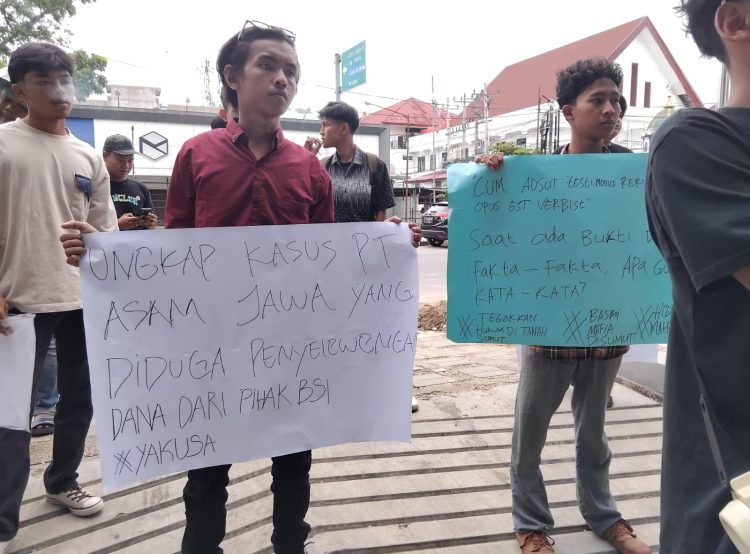 UNGKAP KASUS PT
ASAM JAWA YANG
DIDUGA PENYELEWENGAN
DANA DARI PIHAK BSI
#YAKUSA
"CUM ADSUT testimonia RER
OPUS EST VERBIST"
Saat ada Bukti D
Fakta-Fakta, APA GU
KATA-KATA?
# TEGOKRAN
HUKUM DI TANAH
SUMUT
# BASMI
MAFIA
SUMUT
# HID
MAH